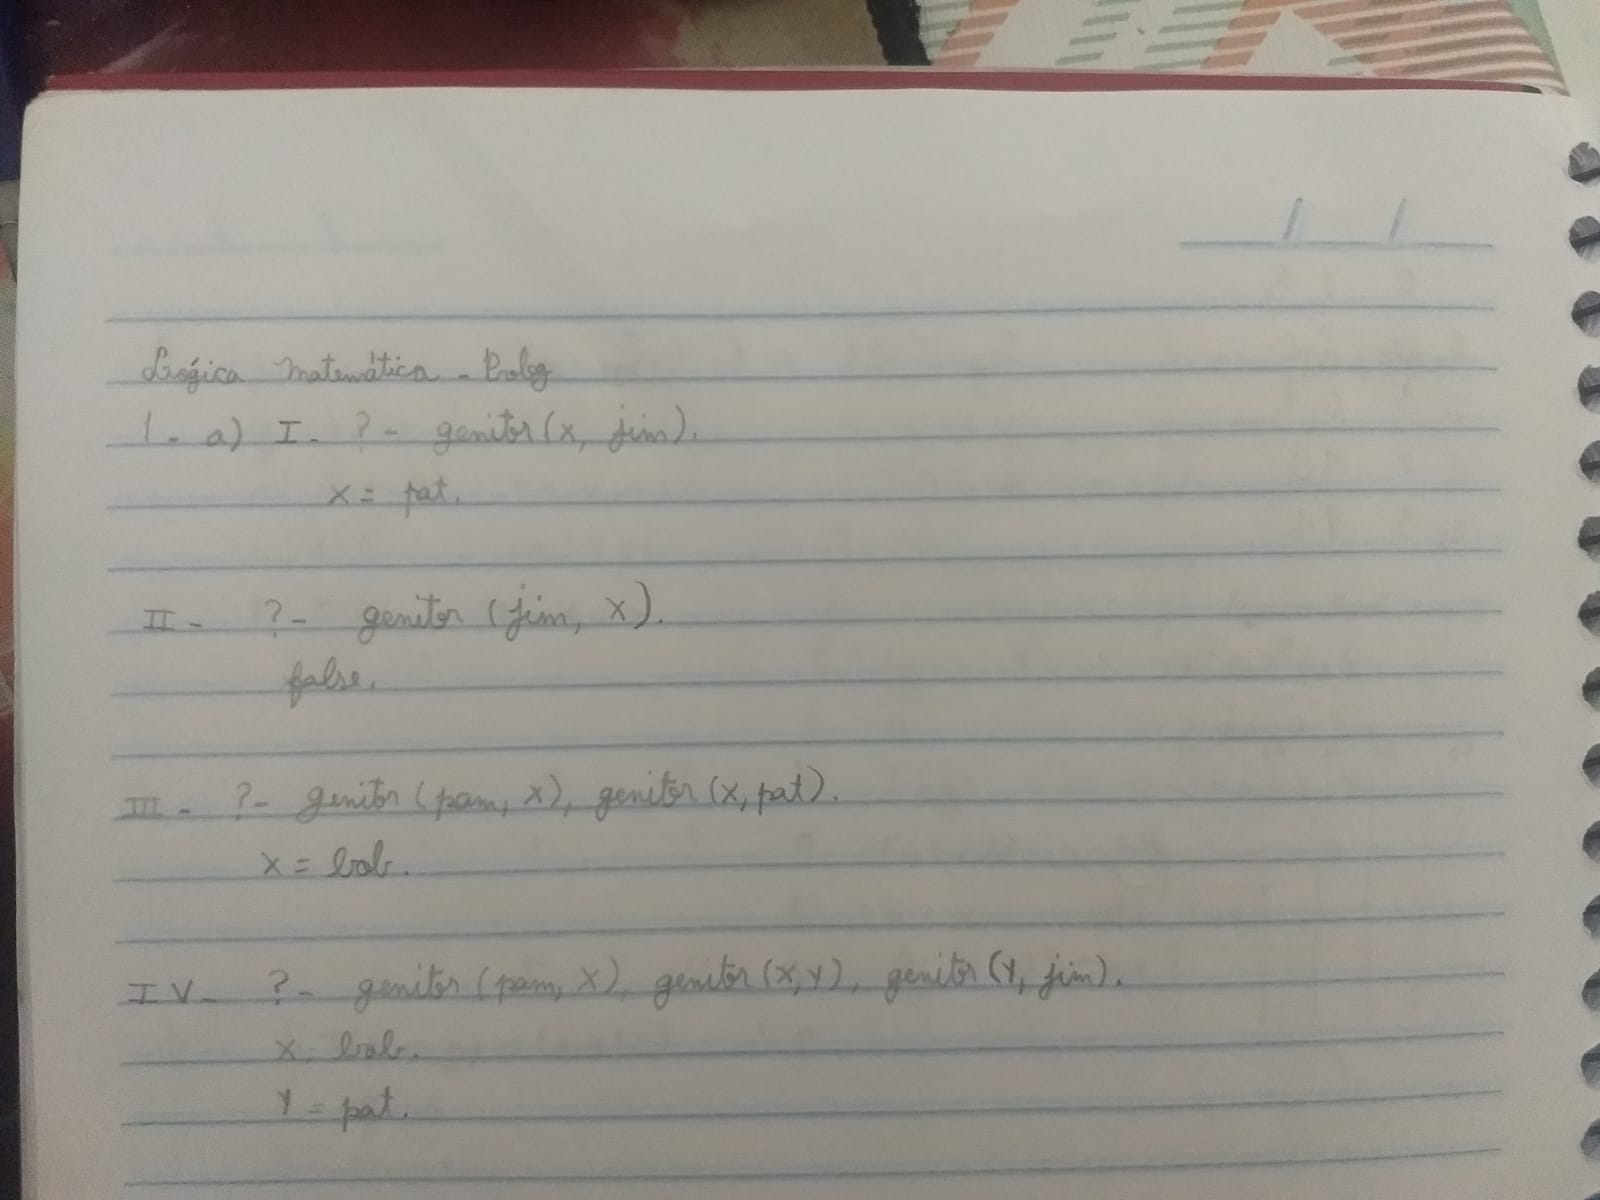 Lógica Matemática - Prolog
1 - a) I - ? - genitor (x, jim).
x = pat.
II - ? - genitor (jim, x).
false.
III - ? - genitor (pam, x), genitor (x, pat).
x = bob.
IV - ? - genitor (pam, x), genitor (x, y), genitor (y, jim).
x = bob.
y = pat.